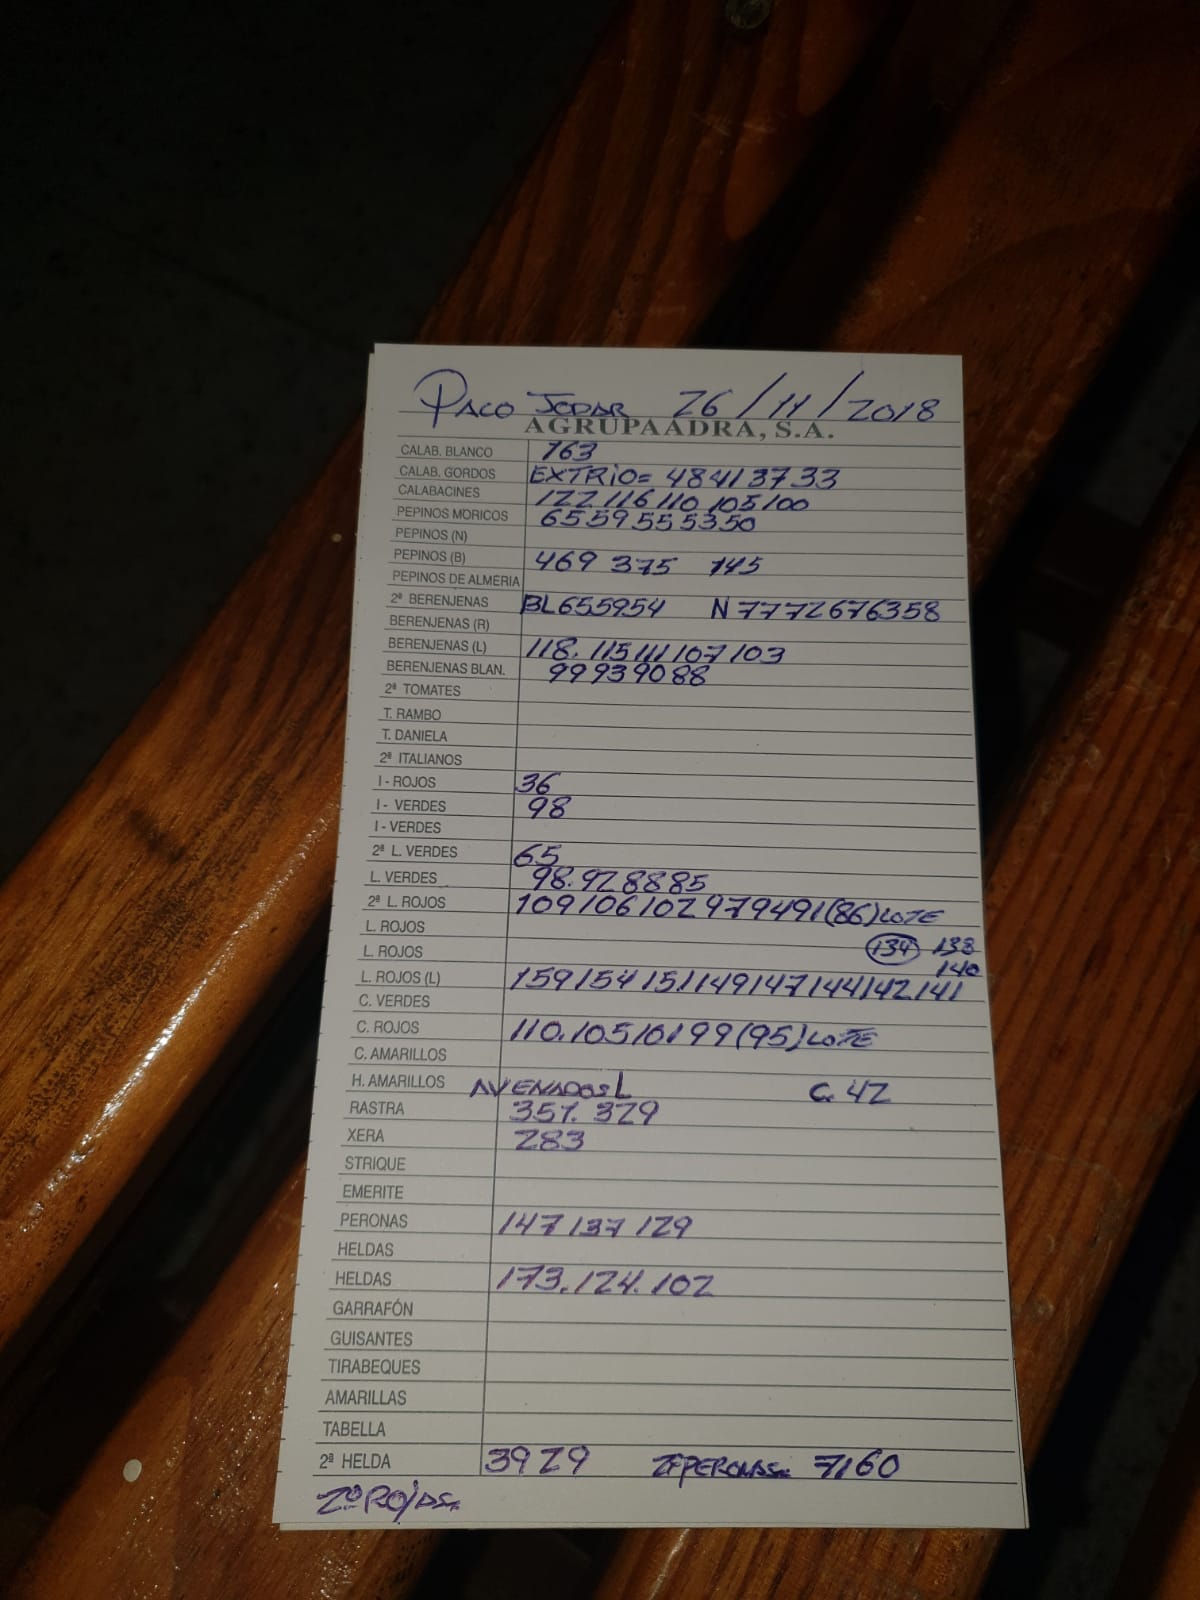 PACO JODAR 26/11/2018
AGRUPAADRA, S.A.
CALAB. BLANCO 163
CALAB. GORDOS EXTRIO= 48 41 37 33
CALABACINES 122 116 110 105 100
PEPINOS MORICOS 65 59 55 53 50
PEPINOS (N)
PEPINOS (B) 469 375 145
PEPINOS DE ALMERIA
2ª BERENJENAS BL 65 59 54 N 77 72 67 63 58
BERENJENAS (R)
BERENJENAS (L) 118. 115 111 107 103
BERENJENAS BLAN. 99 93 90 88
2ª TOMATES
T. RAMBO
T. DANIELA
2ª ITALIANOS
I - ROJOS 36
I - VERDES 98
I - VERDES
2ª L. VERDES 65
L. VERDES 98. 92 88 85
2ª L. ROJOS 109 106 102 97 94 91 (86) LOTE
L. ROJOS
L. ROJOS 134 138
140
L. ROJOS (L) 159 154 151 149 147 144 142 141
C. VERDES
C. ROJOS 110. 105 101 99 (95) LOTE
C. AMARILLOS
H. AMARILLOS AVENADOS L C. 42
RASTRA 351. 329
XERA 283
STRIQUE
EMERITE
PERONAS 147 137 129
HELDAS
HELDAS 173. 124. 102
GARRAFÓN
GUISANTES
TIRABEQUES
AMARILLAS
TABELLA
2ª HELDA 39 29 2ª PERONAS. 71 60
2ª ROJAS.